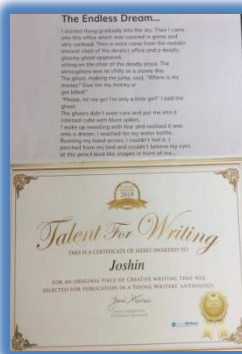 The Endless Dream...
I started flying gradually into the sky. Then I came
into this office which was covered in grime and
very outdated. Then a voice came from the metallic
ancient chair of the derelict office and a deadly,
gloomy ghost appeared,
sitting on the chair of the deadly place. The
atmosphere was as chilly as a snowy day.
The ghost, making me jump, said, "Where is my
money? Give me my money or
get killed!"
"Please, let me go! I'm only a little girl!" I told the
ghost.
The ghosts didn't even care and put me into a
colossal cube with blunt spikes.
I woke up sweating with fear and realised it was
only a dream. I reached for my water bottle.
Running my hand across, I couldn't feel it. I
perched from my bed and couldn't believe my eyes
at the pencil lead like shapes in front of me....
2019
Talent For Writing
THIS IS A CERTIFICATE OF MERIT AWARDED TO
Joshin
FOR AN ORIGINAL PIECE OF CREATIVE WRITING THAT WAS
SELECTED FOR PUBLICATION IN A YOUNG WRITERS' ANTHOLOGY.